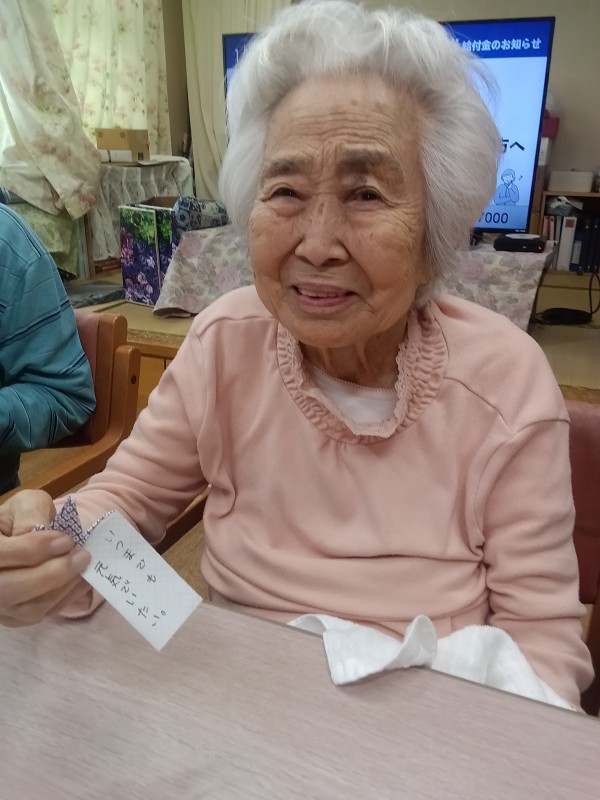 給付金のお知らせ
方へ
7000
いつまでも
元気でいたい。